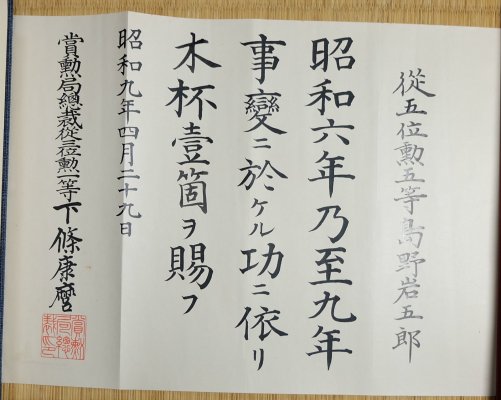 從五位勳五等島野岩五郎
昭和六年乃至九年
事變ニ於ケル功ニ依リ
木杯壹箇ヲ賜フ
昭和九年四月二十九日
賞勳局總裁從三位勳一等下條康麿
賞勳局總裁之印